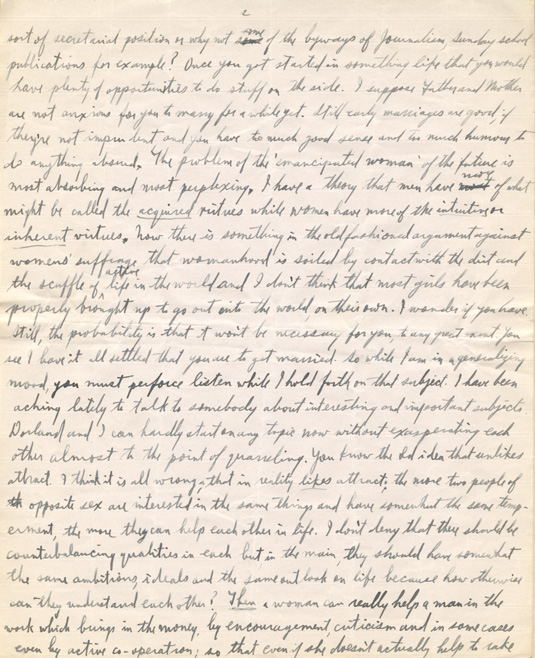 2
sort of secretarial position or why not some of the byways of Journalism, Sunday school
publications for example? Once you got started in something like that you would
have plenty of opportunities to do stuff on the side. I suppose Father and Mother
are not anxious for you to marry for a while yet. Still early marriages are good if
they're not imprudent and you have too much good sense and too much humour to
do anything absurd. The problem of the 'emancipated woman' of the future is
most absorbing and most perplexing. I have a theory that men have more of what
might be called the acquired virtues while women have more of the intuitive or
inherent virtues. Now there is something in the old fashioned argument against
womens' suffrage that womanhood is soiled by contact with the dirt and
the scuffle of active life in the world and I don't think that most girls have been
properly brought up to go out into the world on their own. I wonder if you have.
Still, the probability is that it won't be necessary for you, to any great extent. You
see I have it all settled that you are to get married so while I am in a generalizing
mood, you must perforce listen while I hold forth on that subject. I have been
aching lately to talk to somebody about interesting and important subjects
Dorland and I can hardly start on any topic now without exasperating each
other almost to the point of quarreling. You know the old idea that unlikes
attract. I think it is all wrong, that in reality likes attract; the more two people of
opposite sex are interested in the same things and have somewhat the same temp-
erment, the more they can help each other in life. I don't deny that there should be
counterbalancing qualities in each but in the main, they should have somewhat
the same ambitions, ideals and the same out look on life because how otherwise
can they understand each other? Then a woman can really help a man in the
work which brings in the money, by encouragement, criticism and in some cases
even by active co-operation; so that even if she doesn't actually help to take